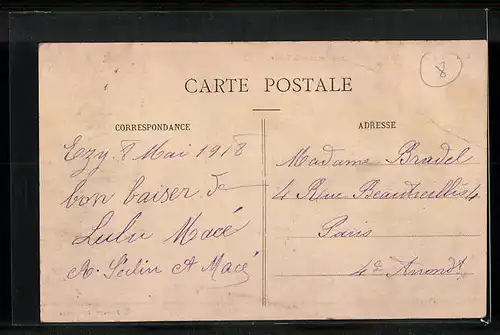 8
CARTE POSTALE
CORRESPONDANCE
Ezy 8 Mai 1918
bon baiser de
Lulu Macé
A. Sédin A Macé
ADRESSE
Madame Bradel
4 Rue Beautreillis 4
Paris
4e Arrondt